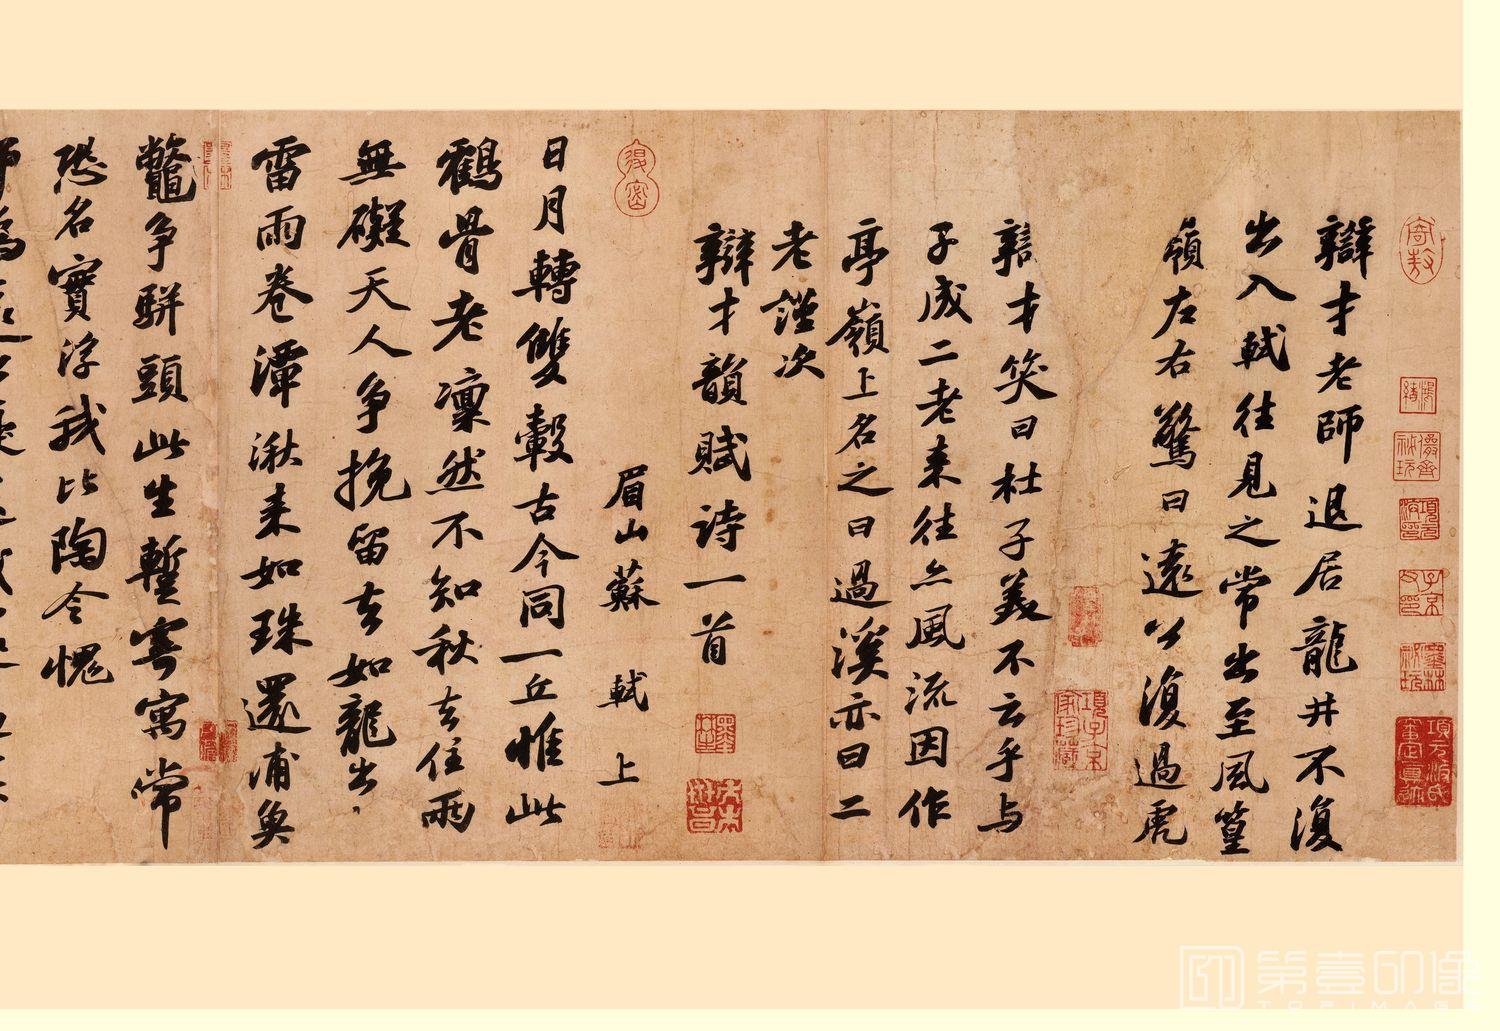 辯才老師退居龍井不復
出入軾往見之常出至風篁
嶺左右驚曰遠公復過虎
辯才笑曰杜子美不云乎与
子成二老来往亦風流因作
亭嶺上名之曰過溪亦曰二
老謹次
辯才韻賦诗一首
眉山蘇軾上
日月轉雙轂古今同一丘惟此
鶴骨老凜然不知秋去住兩
無礙天人争挽留去如龍出
雷雨卷潭湫来如珠還浦魚
鼈争駢頭此生蹔寄寓常
恐名實浮我比陶令愧
第壹印像
TOPIMAGE